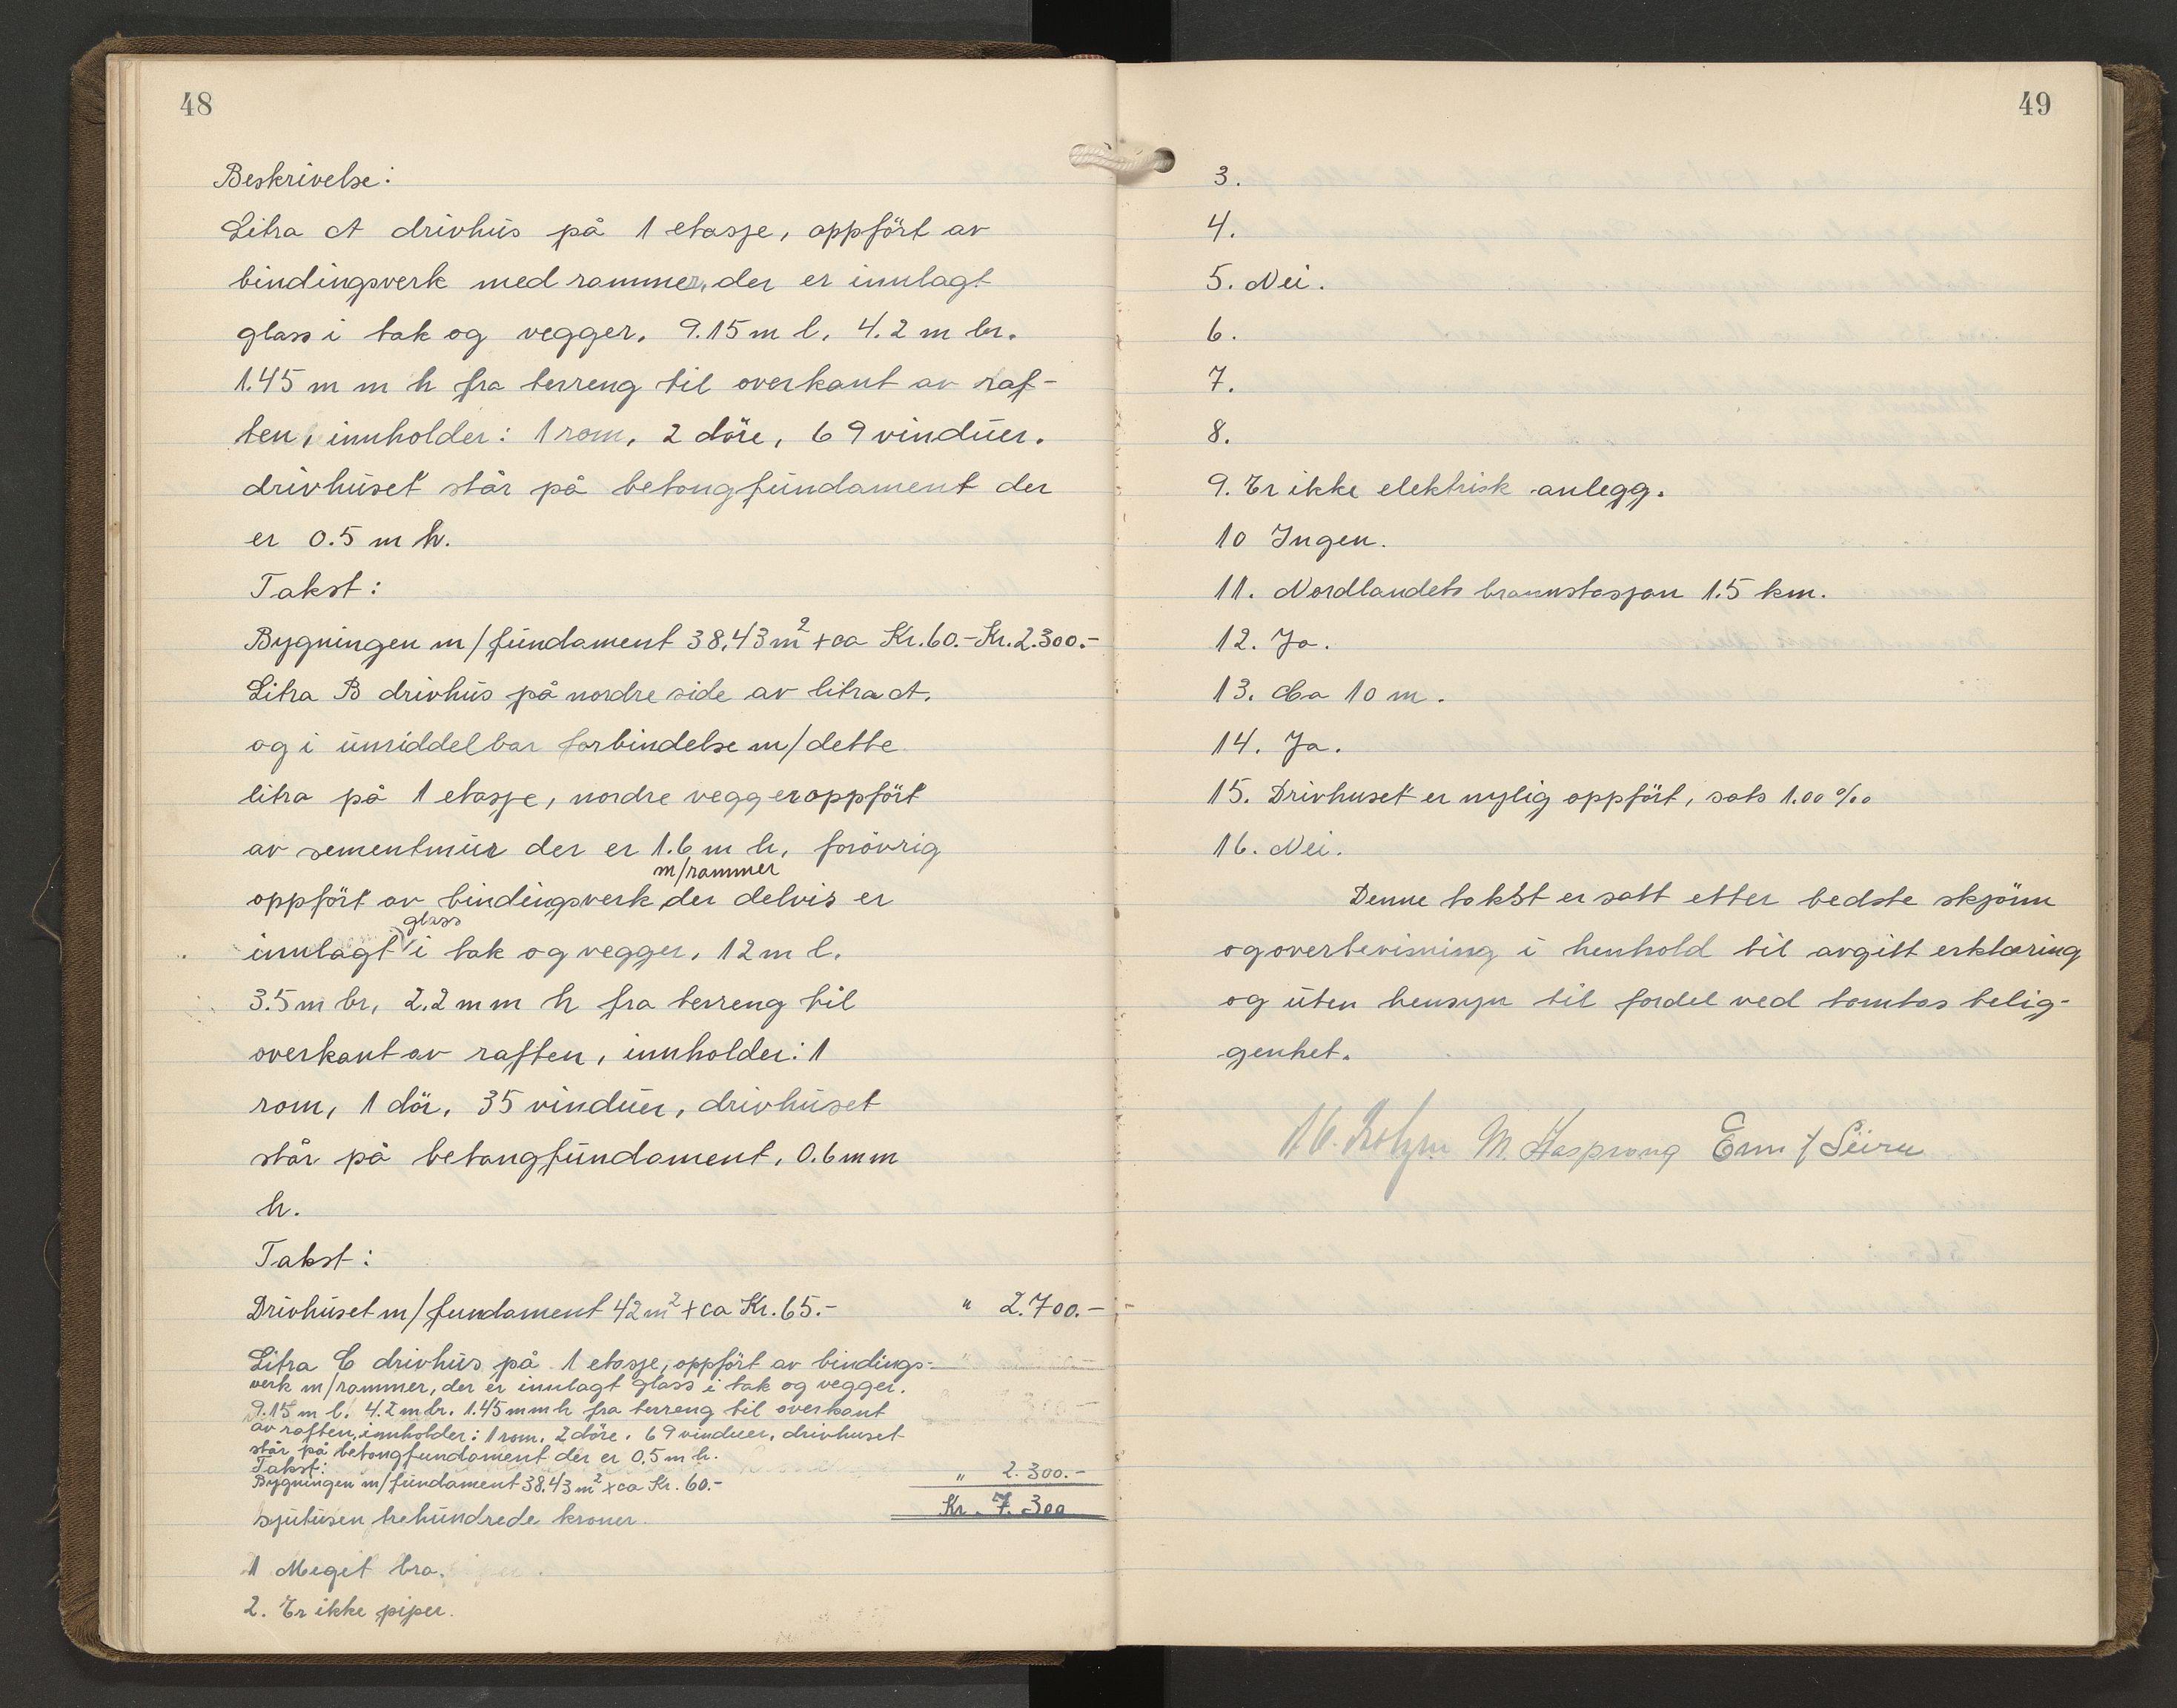 48
Beskrivelse:
Litra A drivhus på 1 etasje, oppført av
bindingsverk med rammer, der er innlagt
glass i tak og vegger. 9.15 m l. 4.2 m br.
1.45 m m h fra terreng til overkant av raf-
ten, innholder: 1 rom, 2 döre, 69 vinduer.
drivhuset står på betongfundament der
er 0.5 m h.
Takst:
Bygningen m/fundament 38.43 m² + ca Kr. 60.- Kr. 2.300.-
Litra B drivhus på nordre side av litra A.
og i umiddelbar forbindelse m/dette
litra på 1 etasje, nordre vegger oppfört
av sementmur der er 1.6 m h, forövrig
m/rammer
oppfört av bindingsverk der delvis er
glass
innlagt i tak og vegger, 12 m l.
3.5 m br, 2.2 m m h fra terreng til
overkant av raften, innholder: 1
rom, 1 dör, 35 vinduer, drivhuset
står på betongfundament, 0.6 m m
h.
Takst:
Drivhuset m/fundament 42 m² + ca Kr. 65.- " 2.700.-
Litra C drivhus på 1 etasje, oppfört av bindings-
verk m/rammer, der er innlagt glass i tak og vegger.
9.15 m l. 4.2 m br. 1.45 m m h fra terreng til overkant
av raften, innholder: 1 rom, 2 döre, 69 vinduer, drivhuset
står på betongfundament der er 0.5 m h.
Takst:
Bygningen m/fundament 38.43 m² + ca Kr. 60.- " 2.300.-
sjutusen trehundrede kroner. Kr. 7.300
1 Meget bra.
2. Er ikke piper.
49
3.
4.
5. Nei.
6.
7.
8.
9. Er ikke elektrisk anlegg.
10 Ingen.
11. Nordlandets brannstasjon 1.5 km.
12. Ja.
13. Ca 10 m.
14. Ja.
15. Drivhuset er nylig oppfört, sats 1.00 ‰
16. Nei.
Denne takst er satt etter bedste skjönn
og overbevisning i henhold til avgitt erklæring
og uten hensyn til fordel ved tomtas belig-
genhet.
M. Hasprong